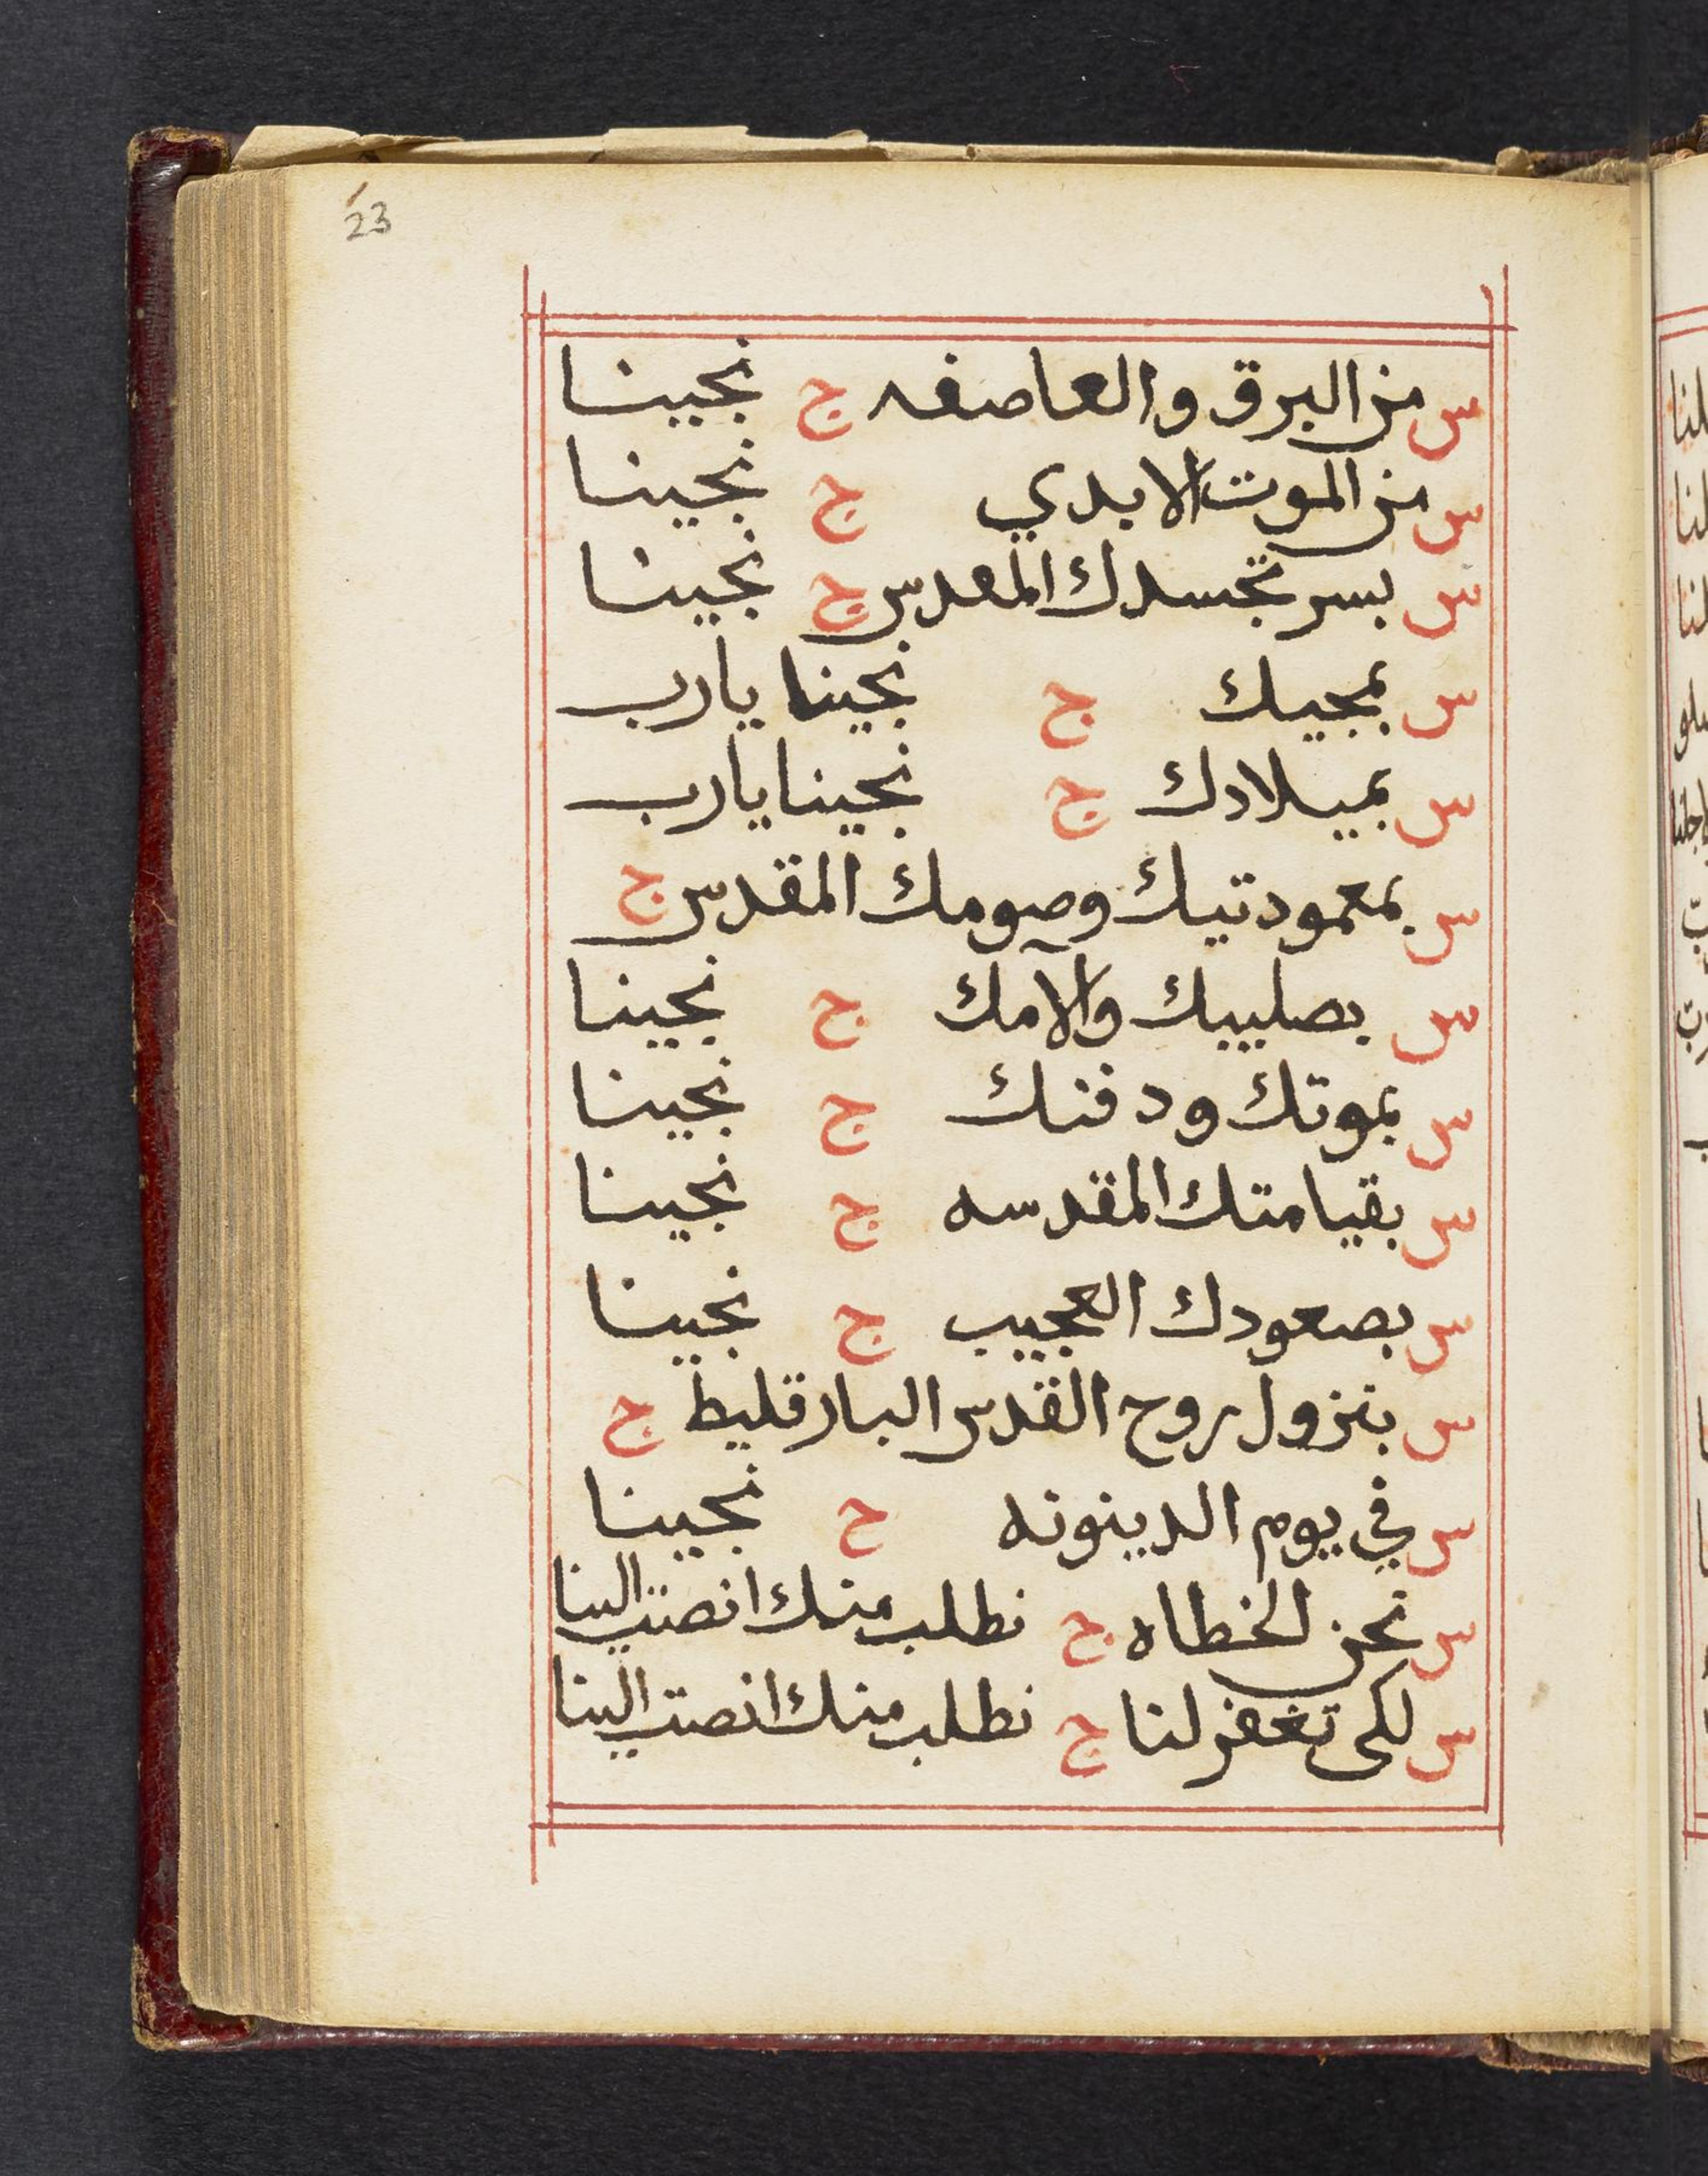 23
س من البرق والعاصفه ج نجينا
س من الموت الابدي ج نجينا
س بسر تجسدك المقدس ج نجينا
س بمجيك ج نجينا يارب
س بميلادك ج نجينا يارب
س بمعموديتك وصومك المقدس ج
س بصليبك والآمك ج نجينا
س بموتك ودفنك ج نجينا
س بقيامتك المقدسه ج نجينا
س بصعودك العجيب ج نجينا
س بنزول روح القدس البارقليط ج
س في يوم الدينونه ج نجينا
س نحن الخطاه ج نطلب منك انصت الينا
س لكى تغفر لنا ج نطلب منك انصت الينا